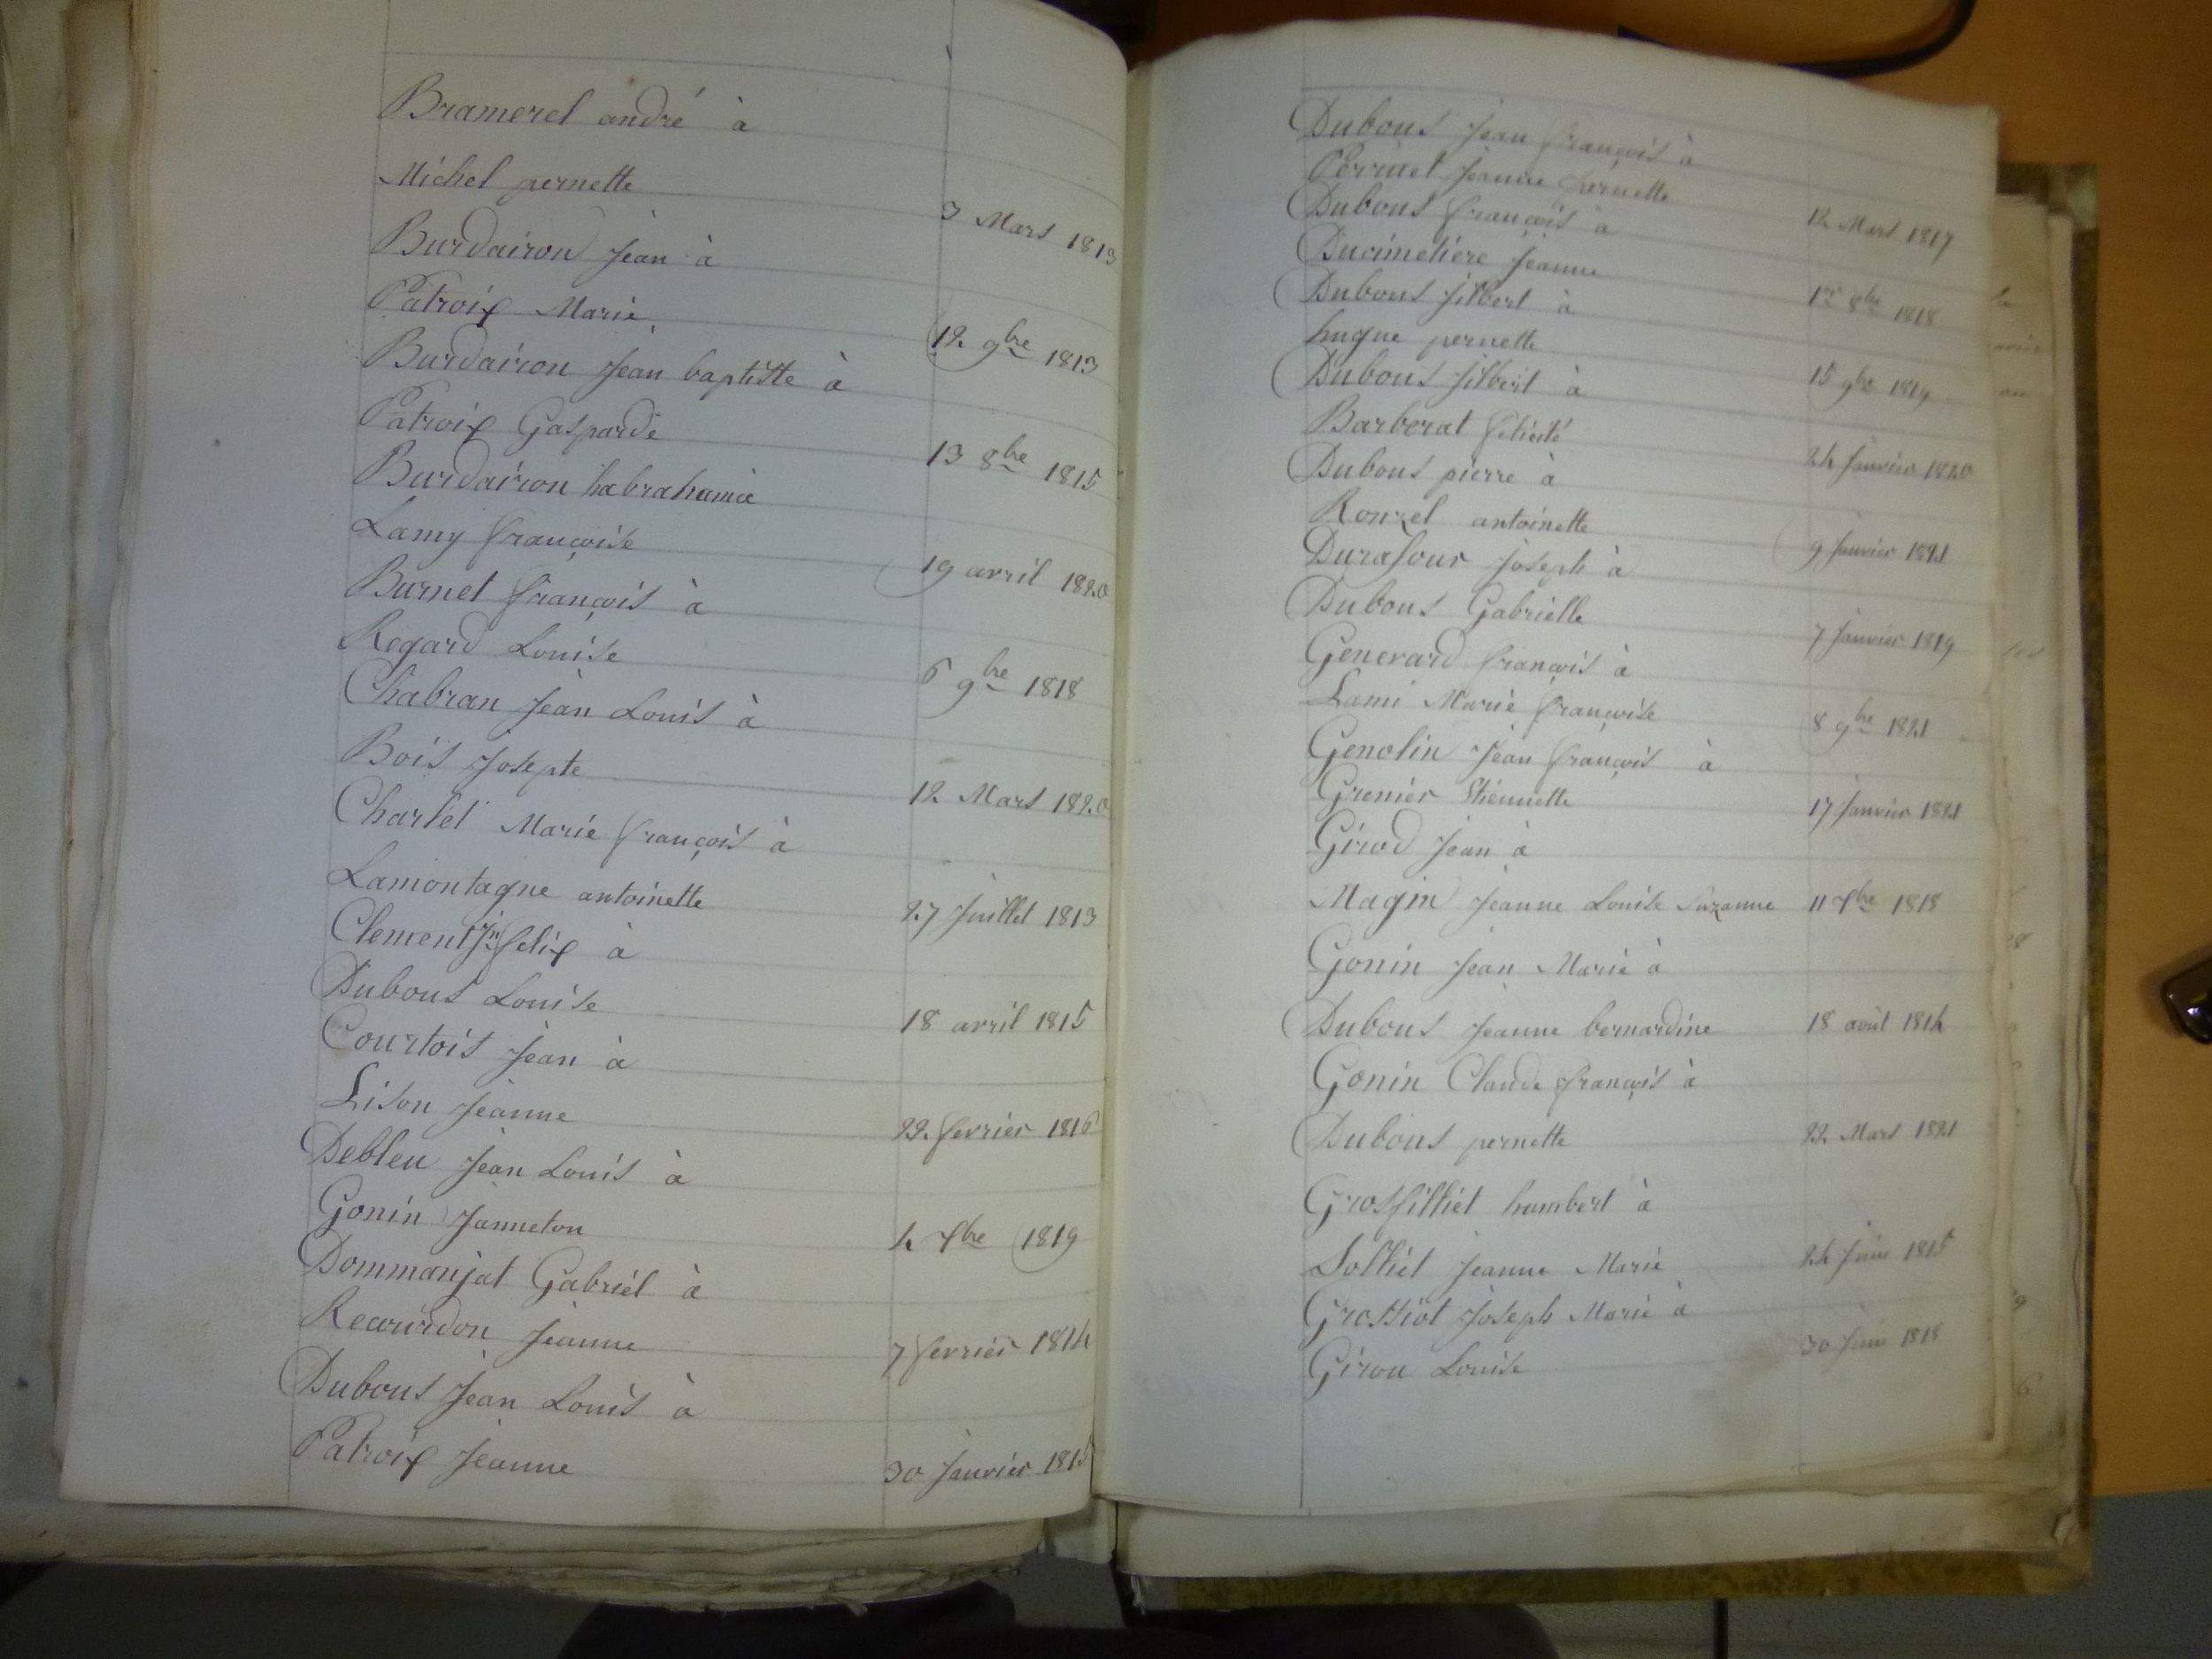 Bramerel andré à
Michel pernette 3 Mars 1813
Burdairon Jean à
Patroix Marie 12 9bre 1813
Burdairon Jean baptiste à
Patroix Gasparde 13 8bre 1815
Burdairon habraham à
Lamy françoise 19 avril 1820
Burnet françois à
Regard Louise 6 9bre 1818
Chabran Jean Louis à
Bois Josepte 12 Mars 1820
Charlet Marie françois à
Lamontagne antoinette 27 Juillet 1813
Clement Jn felix à
Dubous Louise 18 avril 1815
Courtois Jean à
Lison Jeanne 22 fevrier 1816
Debleu Jean Louis à
Gonin Janneton 4 7bre 1819
Dommanjat Gabriel à
Recourdon Jeanne 7 fevrier 1814
Dubous Jean Louis à
Patroix Jeanne 30 Janvier 1815
Dubous Jean françois à
Perrinet Jeanne pernette 12 Mars 1817
Dubous françois à
Ducimetiere Jeanne 1er 8bre 1818
Dubous Jilbert à
hugue pernette 15 9bre 1819
Dubous Jilbert à
Barberat felicité 24 Janvier 1820
Dubous pierre à
Rouzel antoinette 9 Janvier 1821
Durafour Joseph à
Dubous Gabrielle 7 Janvier 1819
Generard françois à
Lami Marie françoise 8 9bre 1821
Genolin Jean françois à
Grenier Etiennette 17 Janvier 1821
Girod Jean à
Magnin Jeanne Louise Suzanne 11 7bre 1818
Gonin Jean Marie à
Dubous Jeanne bernardine 18 août 1814
Gonin Claude françois à
Dubous pernette 22 Mars 1821
Grosfilliet humbert à
Solliet Jeanne Marie 24 Juin 1815
Grossiot Joseph Marie à
Girou Louise 30 Juin 1818